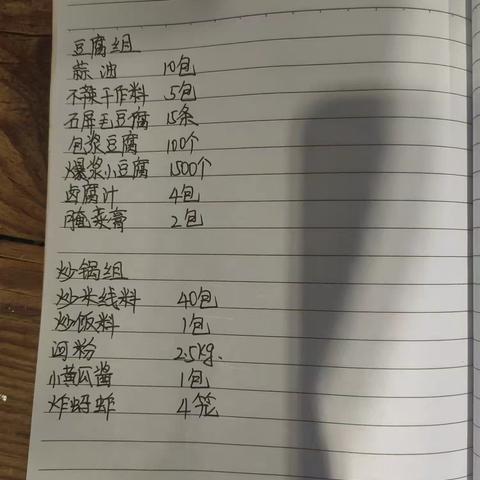 豆腐组
蒜油 10包
不辣干作料 5包
石屏毛豆腐 15条
包浆豆腐 100个
爆浆小豆腐 1500个
卤腐汁 4包
腌菜膏 2包
炒锅组
炒米线料 40包
炒饭料 1包
河粉 2.5kg.
小黄瓜酱 1包
炸蚂蚱 4